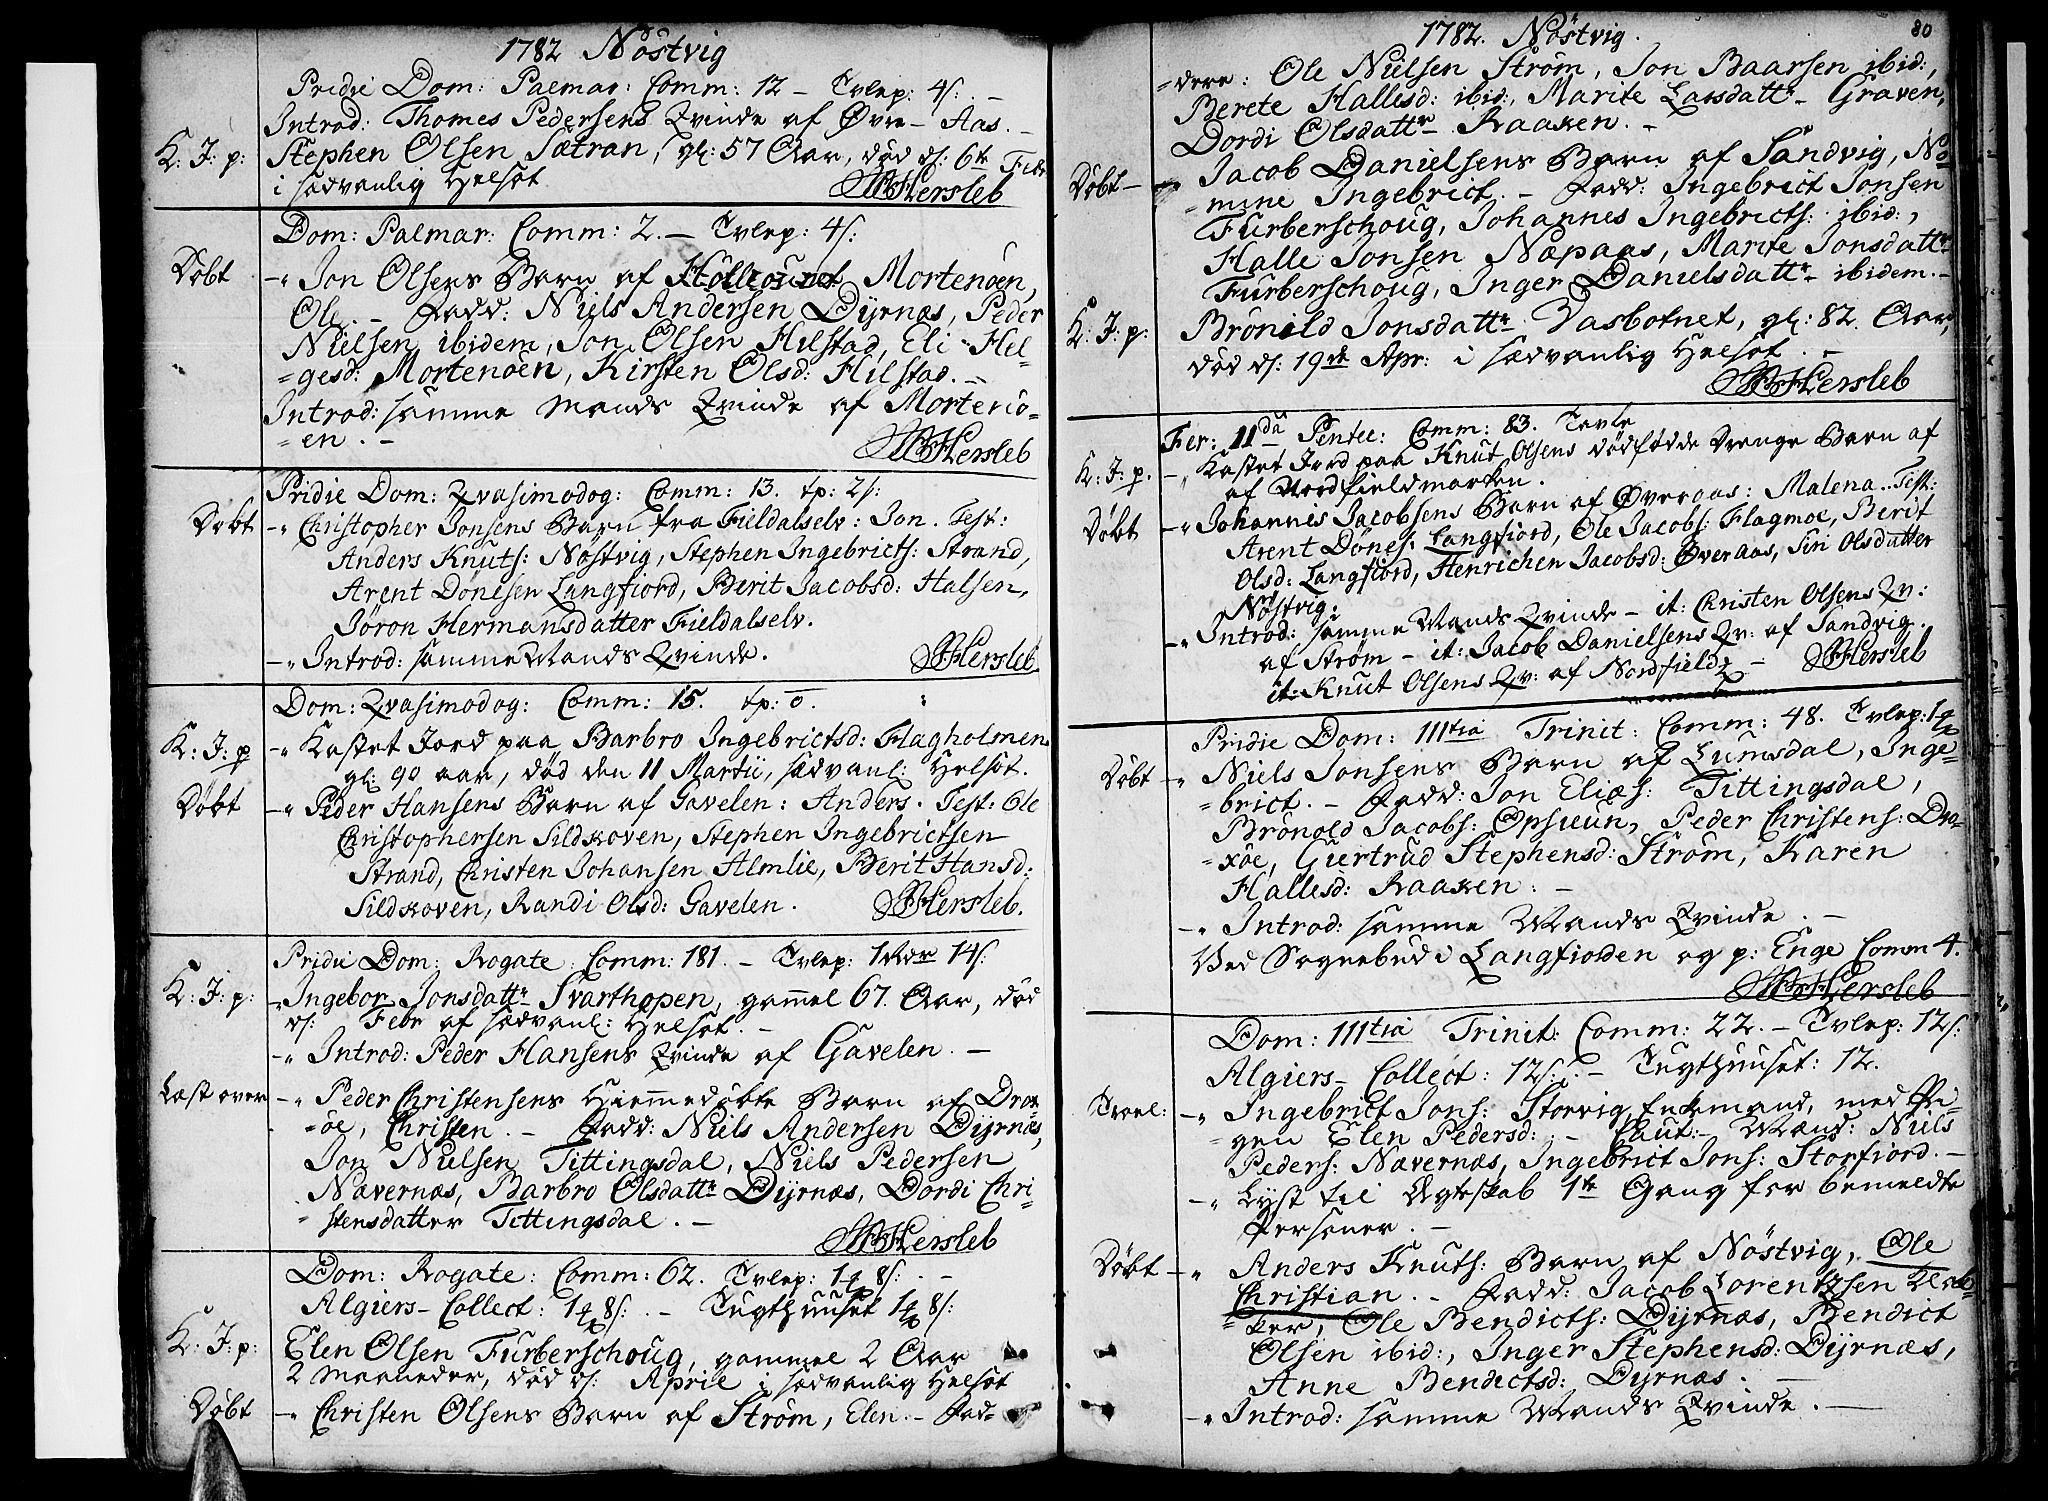 1782 Nöstvig
Pridie Dom: Palmar: Comm: 12 – Tvlep: 4 s: –
Introd: Thomes Pedersens Qvinde af Øvre-Aas. –
K: J: p: Stephen Olsen Sætran, gl: 57 Aar, död d: 6te Febr
i sædvanlig Helsot
Hersleb
Dom: Palmar: Comm: 2. – Tvlep: 4 s:
Döbt –" Jon Olsens Barn af Mortenöen,
Ole. – Fadd: Niels Andersen Dyrnæs, Peder
Nielsen ibidem, Jon Olsen Hilstad, Eli Hel-
=gesd: Mortenöen, Kirsten Olsd: Hilstad. –
Introd: samme Mands Qvinde af Mortenö-
=en. –
Hersleb
Pridie Dom: Qvasimodog: Comm: 13. tp: 2 s:
Döbt –" Christopher Jonsens Barn fra Fieldalselv: Jon. Test:
Anders Knuts: Nöstvig, Stephen Ingebricts: Strand,
Arent Dönesen Langfiord, Berit Jacobsd: Halsen,
Jöron Hermansdatter Fieldalselv.
–" Introd: samme Mands Qvinde.
Hersleb
Dom: Qvasimodog: Comm: 15. tp: o.
K: J: p –" Kastet Jord paa Barbro Ingebrictsd: Flagholmen
gl: 90 aar, död den 11 Martii, sædvanl: Helsot.
Döbt –" Peder Hansens Barn af Gavelen: Anders. Test: Ole
Christophersen Sildskoven, Stephen Ingebrictsen
Strand, Christen Johansen Almlie, Berit Hansd:
Sildskoven, Randi Olsd: Gavelen.
Hersleb.
Pridie Dom: Rogate: Comm: 181. – Tvlep: 1 Rdr 14 s:
K: J: p: –" Ingebor Jonsdattr Svarthopen, gammel 67. Aar, död
d: Febr af sædvanl: Helsot. –
–" Introd: Peder Hansens Qvinde af Gavelen. –
Læst over –" Peder Christensens Hiemmedöbte Barn af Drox-
=öe, Christen. – Fadd: Niels Andersen Dyrnæs,
Jon Nielsen Tittingsdal, Niels Pedersen
Nævernæs, Barbro Olsdattr Dyrnæs, Dordi Chri-
=stensdatter Tittingsdal. –
Hersleb
Dom: Rogate: Comm: 62. Tvlep: 1 8 s: –
Algiers-Collect: 1 8 s: – Tugthuuset 1 8 s:
K: J: p: Elen Olsen Furberschoug, gammel 2 Aar
2 Maaneder, död d: April i sædvanlig Helsot
Döbt –" Christen Olsens Barn af Ström, Elen. – Fad-
1782. Nöstvig. 80
=dere: Ole Nielsen Ström, Jon Baarsen ibid:,
Berete Hallesd: ibid:, Marite Larsdattr Graven,
Dordi Olsdattr Raaken. –
Döbt – Jacob Danielsens Barn af Sandvig, No-
=mine Ingebrict. – Fadd: Ingebrict Jonsen
Furberschoug, Johannes Ingebricts: ibid:,
Halle Jonsen Næpaas, Marite Jonsdattr
Furberschoug, Inger Danielsdattr ibidem. –
K: J: p: Brönild Jonsdattr Vasbotnet, gl: 82 Aar,
död d: 19de Apr: i sædvanlig Helsot. –
Hersleb
Fer: 11da Pentec: Comm: 83. Tevle
K: J: p. –" Kastet Jord paa Knut Olsens dödfödde Drenge Barn af
af Nordfieldmarken.
Döbt –" Johannis Jacobsens Barn af Øveraas: Malena. Test:
Arent Dönes: Langfiord, Ole Jacobs: Flagmoe, Berit
Olsd: Langfiord, Henrichen Jacobsd: Øveraas, Siri Olsdatter
Nöstvig:
–" Introd: samme Mands Qvinde – it: Christen Olsens Qv:
af Ström – it: Jacob Danielsens Qv: af Sandvig.
it: Knut Olsens Qv: af Nordfield –
Hersleb
Pridie Dom: 111tia Trinit: Comm: 48. Tvlep: 1
Döbt –" Niels Jonsens Barn af Lumsdal, Inge-
=brict. – Fadd: Jon Elias: Tittingsdal,
Brönold Jacobs: Opsuun, Peder Christens: Dro-
=xöe, Giertrud Stephensd: Ström, Karen
Hallesd: Raaken: –
–" Introd: samme Mands Qvinde. –
Ved Sognebud i Langfiorden og p: Enge Comm 4.
Hersleb
Dom: 111tia Trinit: Comm: 22. – Tvlep: 12 s:
Algiers-Collect: 12 s: – Tugthuuset: 12.
Trovl: –" Ingebrict Jons: Storvig, Enkemand, med Pi-
=gen Elen Pedersd: – Caut:-Mænd: Niels
Peders: Nævernæs, Ingebrict Jons: Storfiord. –
–" Lyst til Ægteskab 1te Gang for bemeldte
Personer. –
Döbt –" Anders Knuts: Barn af Nöstvig, Ole
Christian. – Fadd: Jacob Lorentzen
=ker, Ole Bendicts: Dyrnæs, Bendict
Olsen ibid:, Inger Stephensd: Dyrnæs,
Anne Bendictsd: Dyrnæs. –
–" Introd: samme Mands Qvinde. –